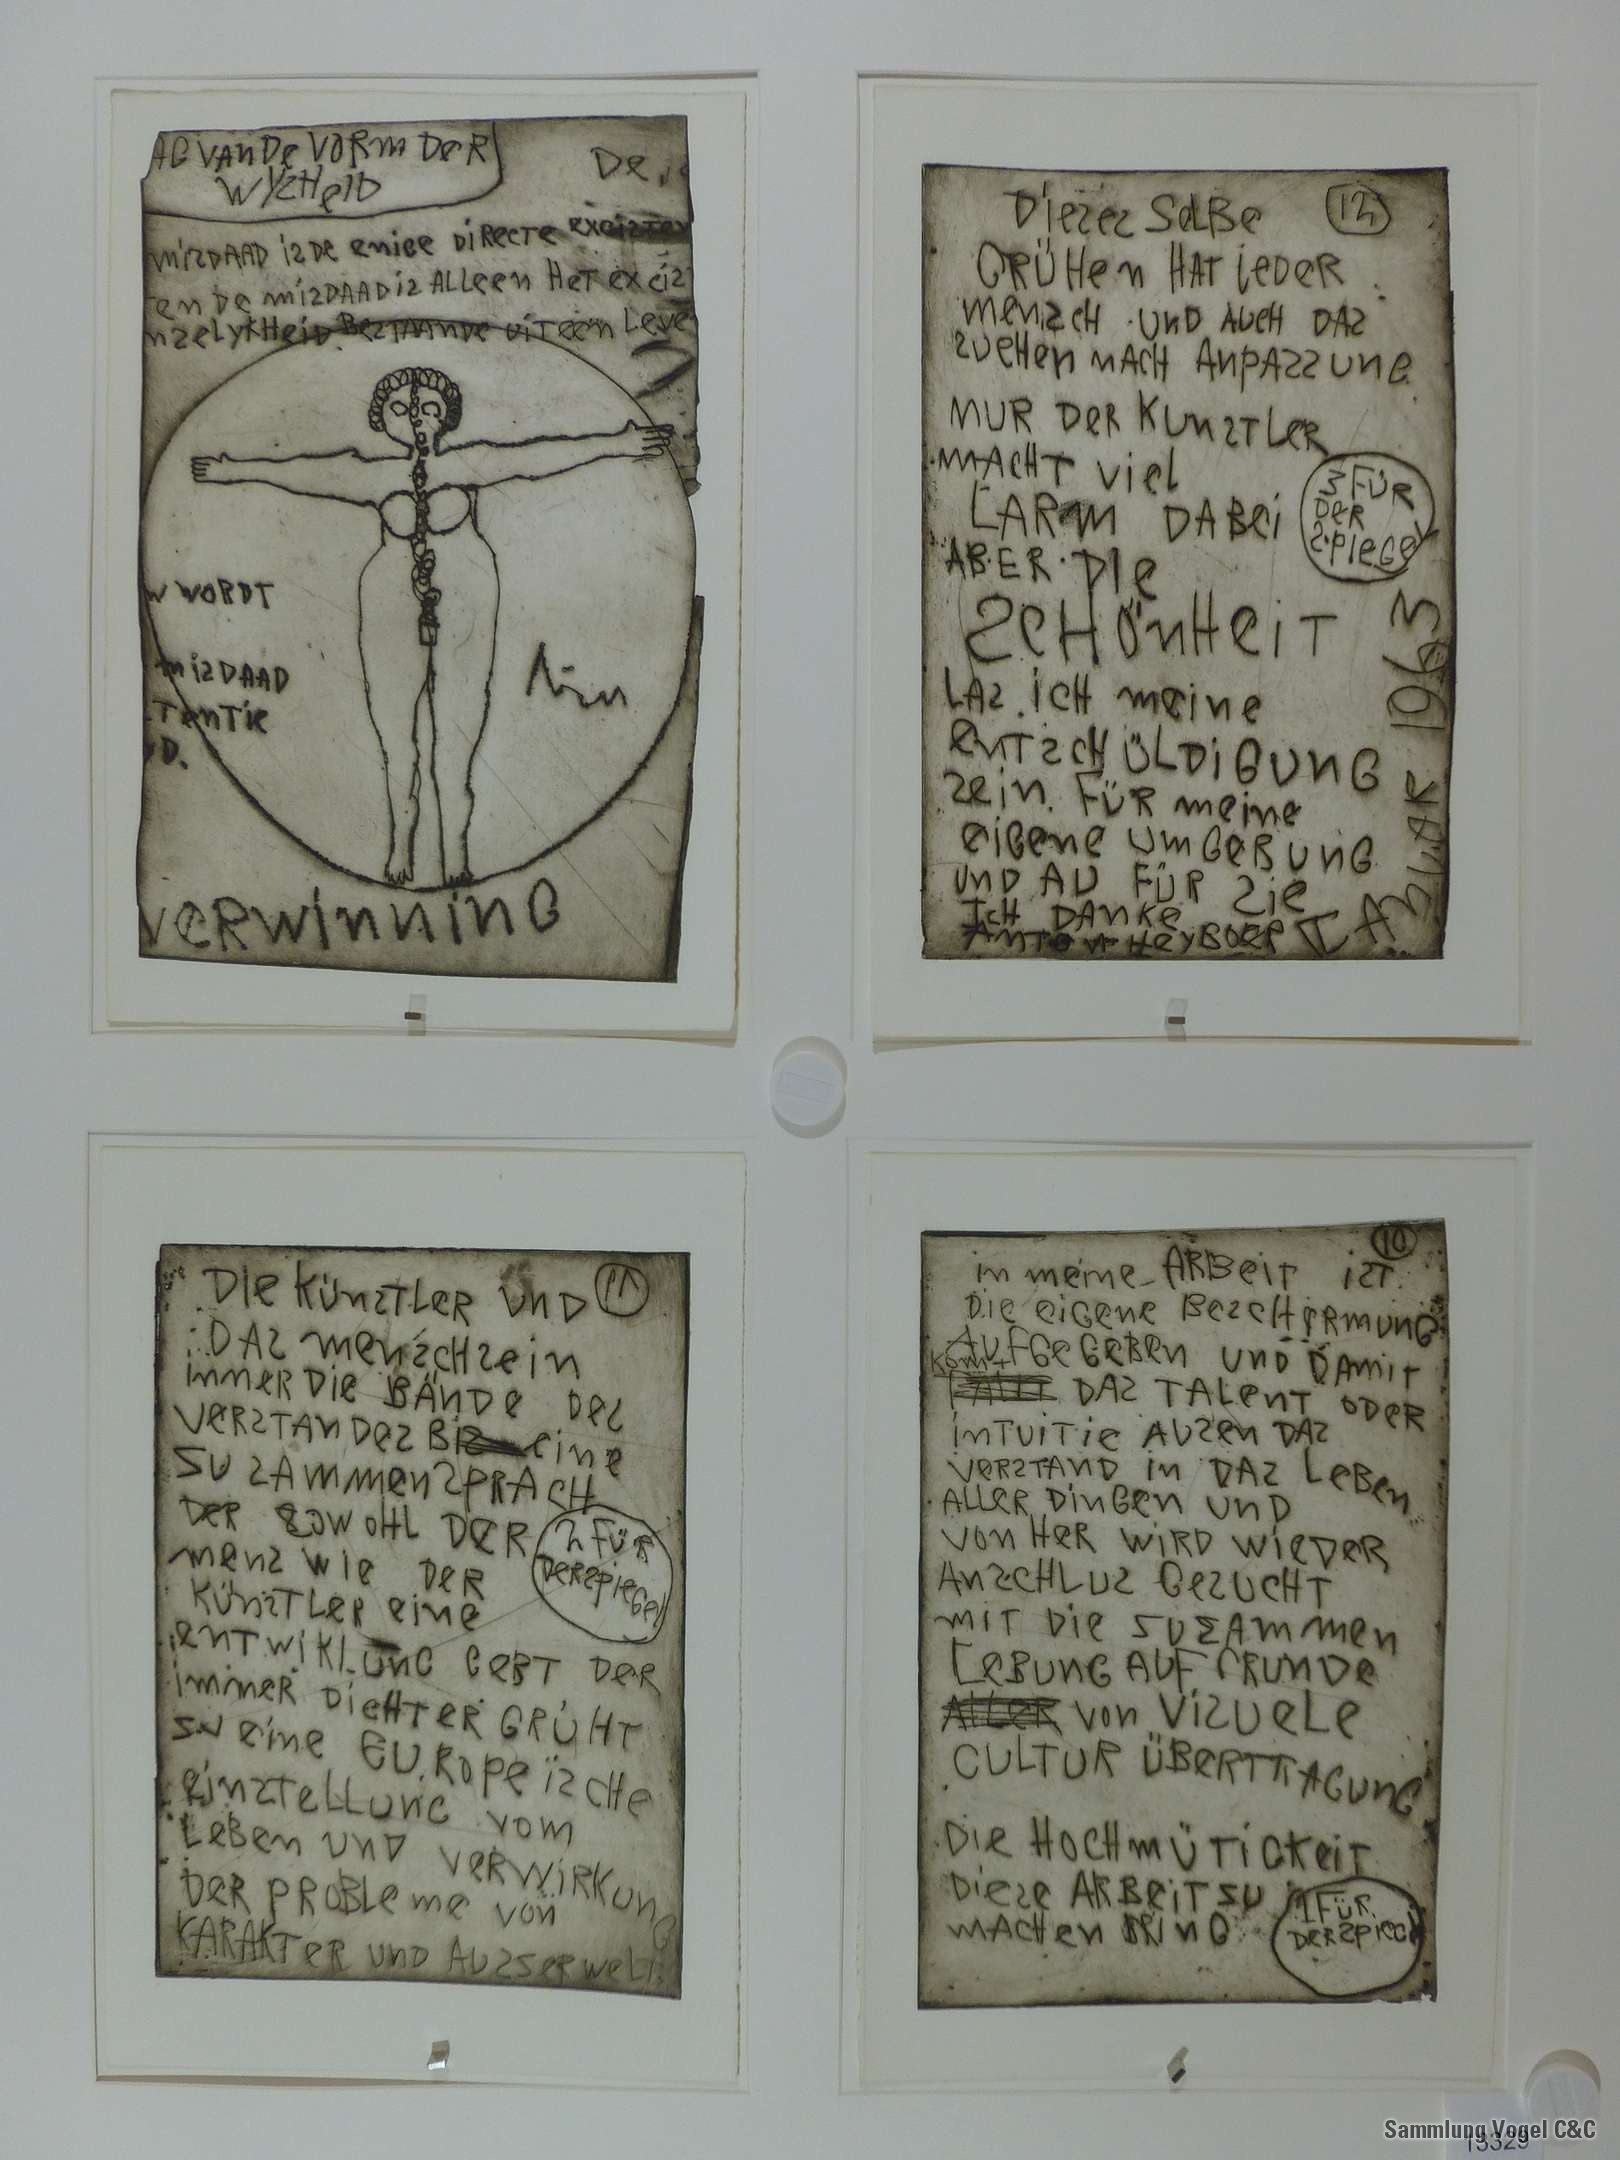 AG VAN DE VORM DER
WYZHEID
De
MISDAAD IS DE ENIGE DIRECTE
EN DE MISDAAD IS ALLEEN HET EXCIS
NSELYKHEID BESTAANDE UIT EEN LEVE
W WORDT
MISDAAD
TENTIE
D.
VERWINNING
DIESES SELBE
12
GRÜHEN HAT JEDER
MENSCH UND AUCH DAS
SUEHEN NACH ANPASSUNG
NUR DER KUNSTLER
MACHT VIEL
LARM DABEI
3 FÜR
DER
SPIEGEL
ABER DIE
SCHÖNHEIT
LAS ICH MEINE
ENTSCHÜLDIGUNG
SEIN. FÜR MEINE
EIGENE UMGEBUNG
UND AU FÜR SIE
ICH DANKE
ANTON HEYBOER
1963
DIE KÜNSTLER UND
11
DAS MENSCHSEIN
IMMER DIE BÄNDE DES
VERSTANDES BIS EINE
SU SAMMENSPRACH
DER SOWOHL DER
MENS WIE DER
2 FÜR
DER SPIEGEL
KÜNSTLER EINE
ENTWIKLUNG GEBT DER
IMMER DICHTER GRÜHT
SU EINE EUROPEÏSCHE
EINSTELLUNG VOM
LEBEN UND VERWIRKUNG
DER PROBLEME VON
KARAKTER UND AUSSERWELT
10
IN MEINE ARBEIT IST
DIE EIGENE BESCHERMUNG
AUFGEGEBEN UND DAMIT
KOMT
DAS TALENT ODER
INTUITIE AUSEN DAS
VERSTAND IN DAS LEBEN
ALLER DINGEN UND
VON HER WIRD WIEDER
ANSCHLUS GESUCHT
MIT DIE SUSAMMEN
LEBUNG AUF GRUNDE
ALLER VON VISUELE
CULTUR ÜBERTRAGUNG
DIE HOCHMÜTIGKEIT
DIESE ARBEIT SU
MACHEN BRING
1 FÜR
DER SPIEGEL
Sammlung Vogel C&C
13329